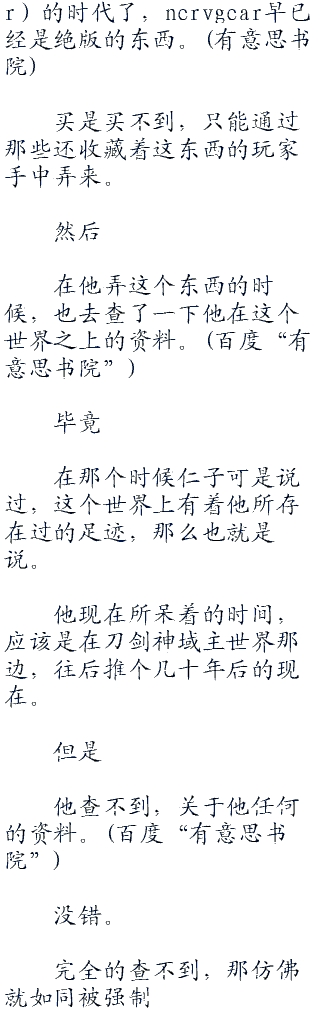 r）的时代了，ncrvgcar早已
经是绝版的东西。(有意思书
院)
买是买不到，只能通过
那些还收藏着这东西的玩家
手中弄来。
然后
在他弄这个东西的时
候，也去查了一下他在这个
世界之上的资料。(百度“有
意思书院”)
毕竟
在那个时候仁子可是说
过，这个世界上有着他所存
在过的足迹，那么也就是
说。
他现在所呆着的时间，
应该是在刀剑神域主世界那
边，往后推个几十年后的现
在。
但是
他查不到，关于他任何
的资料。(百度“有意思书
院”)
没错。
完全的查不到，那仿佛
就如同被强制